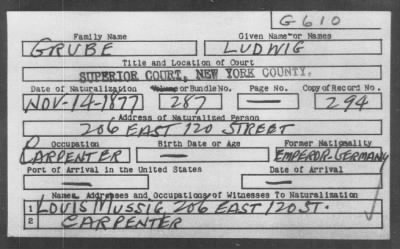 G 610
Family Name Given Name or Names
GRUBE LUDWIG
Title and Location of Court
SUPERIOR COURT, NEW YORK COUNTY.
Date of Naturalization Volume or Bundle No. Page No. Copy of Record No.
NOV-14-1877 287 — 294
Address of Naturalized Person
206 EAST 120 STREET
Occupation Birth Date or Age Former Nationality
CARPENTER — EMPEROR-GERMANY
Port of Arrival in the United States Date of Arrival
— —
Names, Addresses and Occupations of Witnesses To Naturalization
1 LOUIS MUSSIG, 206 EAST 120 ST.
2 CARPENTER